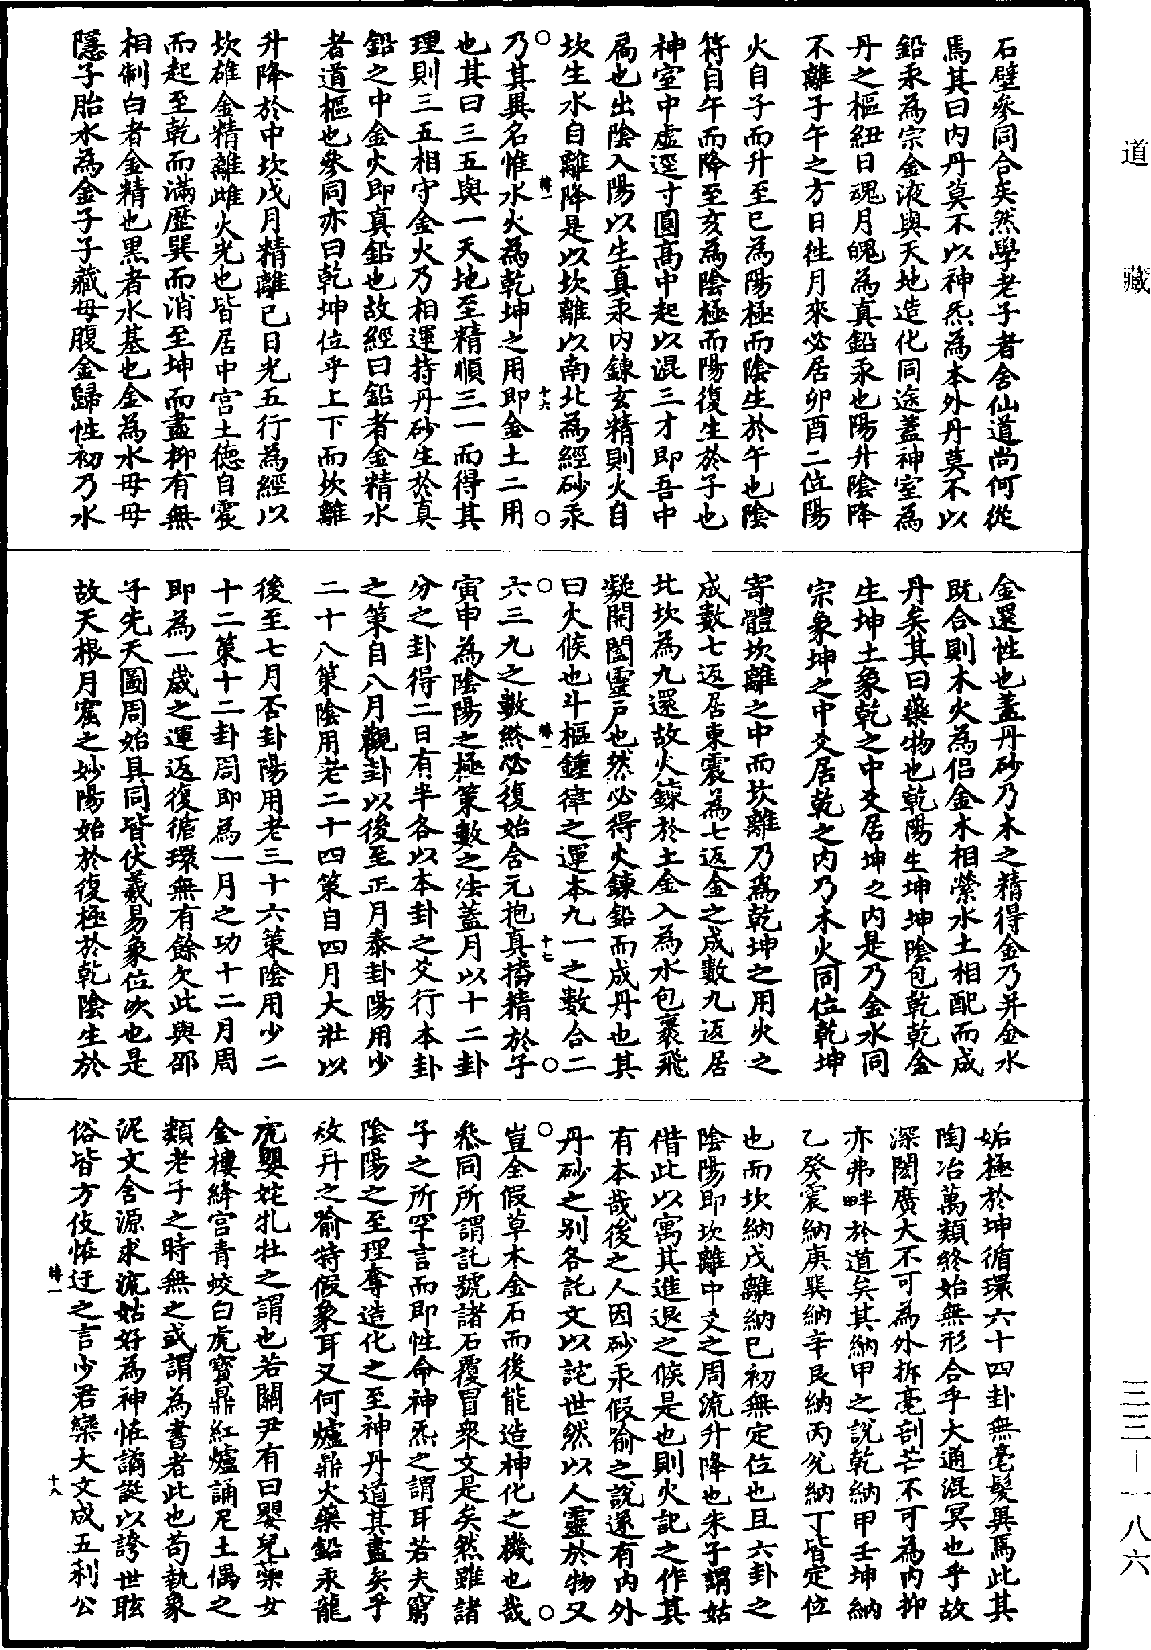 道藏
石壁參同合矣然學老子者舍仙道尚何從
焉其曰內丹莫不以神炁為本外丹莫不以
鉛汞為宗金液與天地造化同途蓋神室為
丹之樞紐日魂月魄為真鉛汞也陽升陰降
不離子午之方日徃月來必居卯酉二位陽
火自子而升至巳為陽極而陰生於午也陰
符自午而降至亥為陰極而陽復生於子也
神室中虛逕寸圓高中起以混三才即吾中
扃也出陰入陽以生真汞內鍊玄精則火自
坎生水自離降是以坎離以南北為經砂汞
乃其異名惟水火為乾坤之用即金土二用
也其曰三五與一天地至精順三一而得其
理則三五相守金火乃相運持丹砂生於真
鉛之中金火即真鉛也故經曰鉛者金精水
者道樞也參同亦曰乾坤位乎上下而坎離
升降於中坎戊月精離己日光五行為經以
坎雄金精離雌火光也皆居中宮土德自震
而起至乾而滿歷巽而消至坤而盡抑有無
相制白者金精也黑者水基也金為水母母
隱子胎水為金子子藏母腹金歸性初乃水
金還性也蓋丹砂乃木之精得金乃并金水
既合則木火為侶金木相縈水土相配而成
丹矣其曰藥物也乾陽生坤坤陰包乾乾金
生坤土象乾之中爻居坤之內是乃金水同
宗象坤之中爻居乾之內乃木火同位乾坤
寄體坎離之中而坎離乃為乾坤之用火之
成數七返居東震為七返金之成數九返居
北坎為九還故火鍊於土金入為水包裹飛
凝開闔靈戶也然必得火鍊鉛而成丹也其
曰火候也斗樞鍾律之運本九一之數合二
六三九之數終必復始含元抱真播精於子
寅申為陰陽之極策數之法蓋月以十二卦
分之卦得二日有半各以本卦之爻行本卦
之策自八月觀卦以後至正月泰卦陽用少
二十八策陰用老二十四策自四月大壯以
後至七月否卦陽用老三十六策陰用少二
十二策十二卦周即為一月之功十二月周
即為一歲之運返復循環無有餘欠此與邵
子先天圖周始具同皆伏羲易象位次也是
故天根月窟之妙陽始於復極於乾陰生於
姤極於坤循環六十四卦無毫髮異焉此其
陶冶萬類終始無形合乎大通混冥也乎故
深閎廣大不可為外拆毫剖芒不可為內抑
亦弗畔於道矣其納甲之說乾納甲壬坤納
乙癸震納庚巽納辛艮納丙兌納丁皆定位
也而坎納戊離納巳初無定位也且六卦之
陰陽即坎離中爻之周流升降也朱子謂姑
借此以寓其進退之候是也則火記之作其
有本哉後之人因砂汞假喻之說遂有內外
丹砂之別各託文以詫世然以人靈於物又
豈全假草木金石而後能造神化之機也哉
參同所謂託號諸石覆冒衆文是矣然雖諸
子之所罕言而即性命神炁之謂耳若夫窮
陰陽之至理奪造化之至神丹道其盡矣乎
故丹之喻特假象耳又何爐鼎火藥鉛汞龍
虎嬰姹牝牡之謂也若關尹有曰嬰兒蘂女
金樓絳宮青蛟白虎寶鼎紅爐誦呪土偶之
類老子之時無之或謂為書者此也苟執象
泥文舍源求流姑好為神怪譎誕以誇世眩
俗皆方伎怪迂之言少君欒大文成五利公
峰一
十六
峰一
十七
峰一
十八
三三—一八六